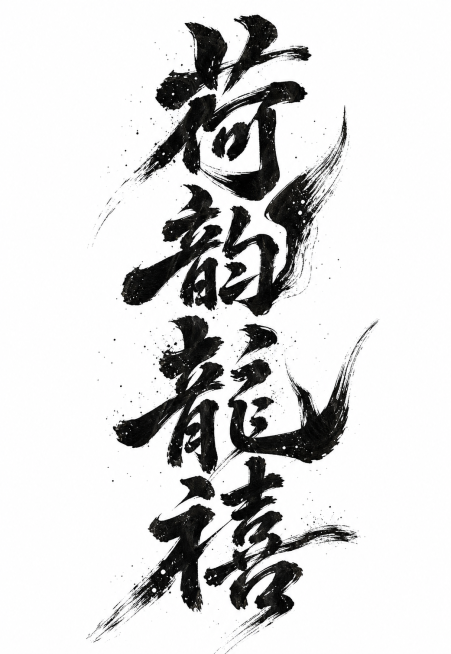 荷韵龍禧